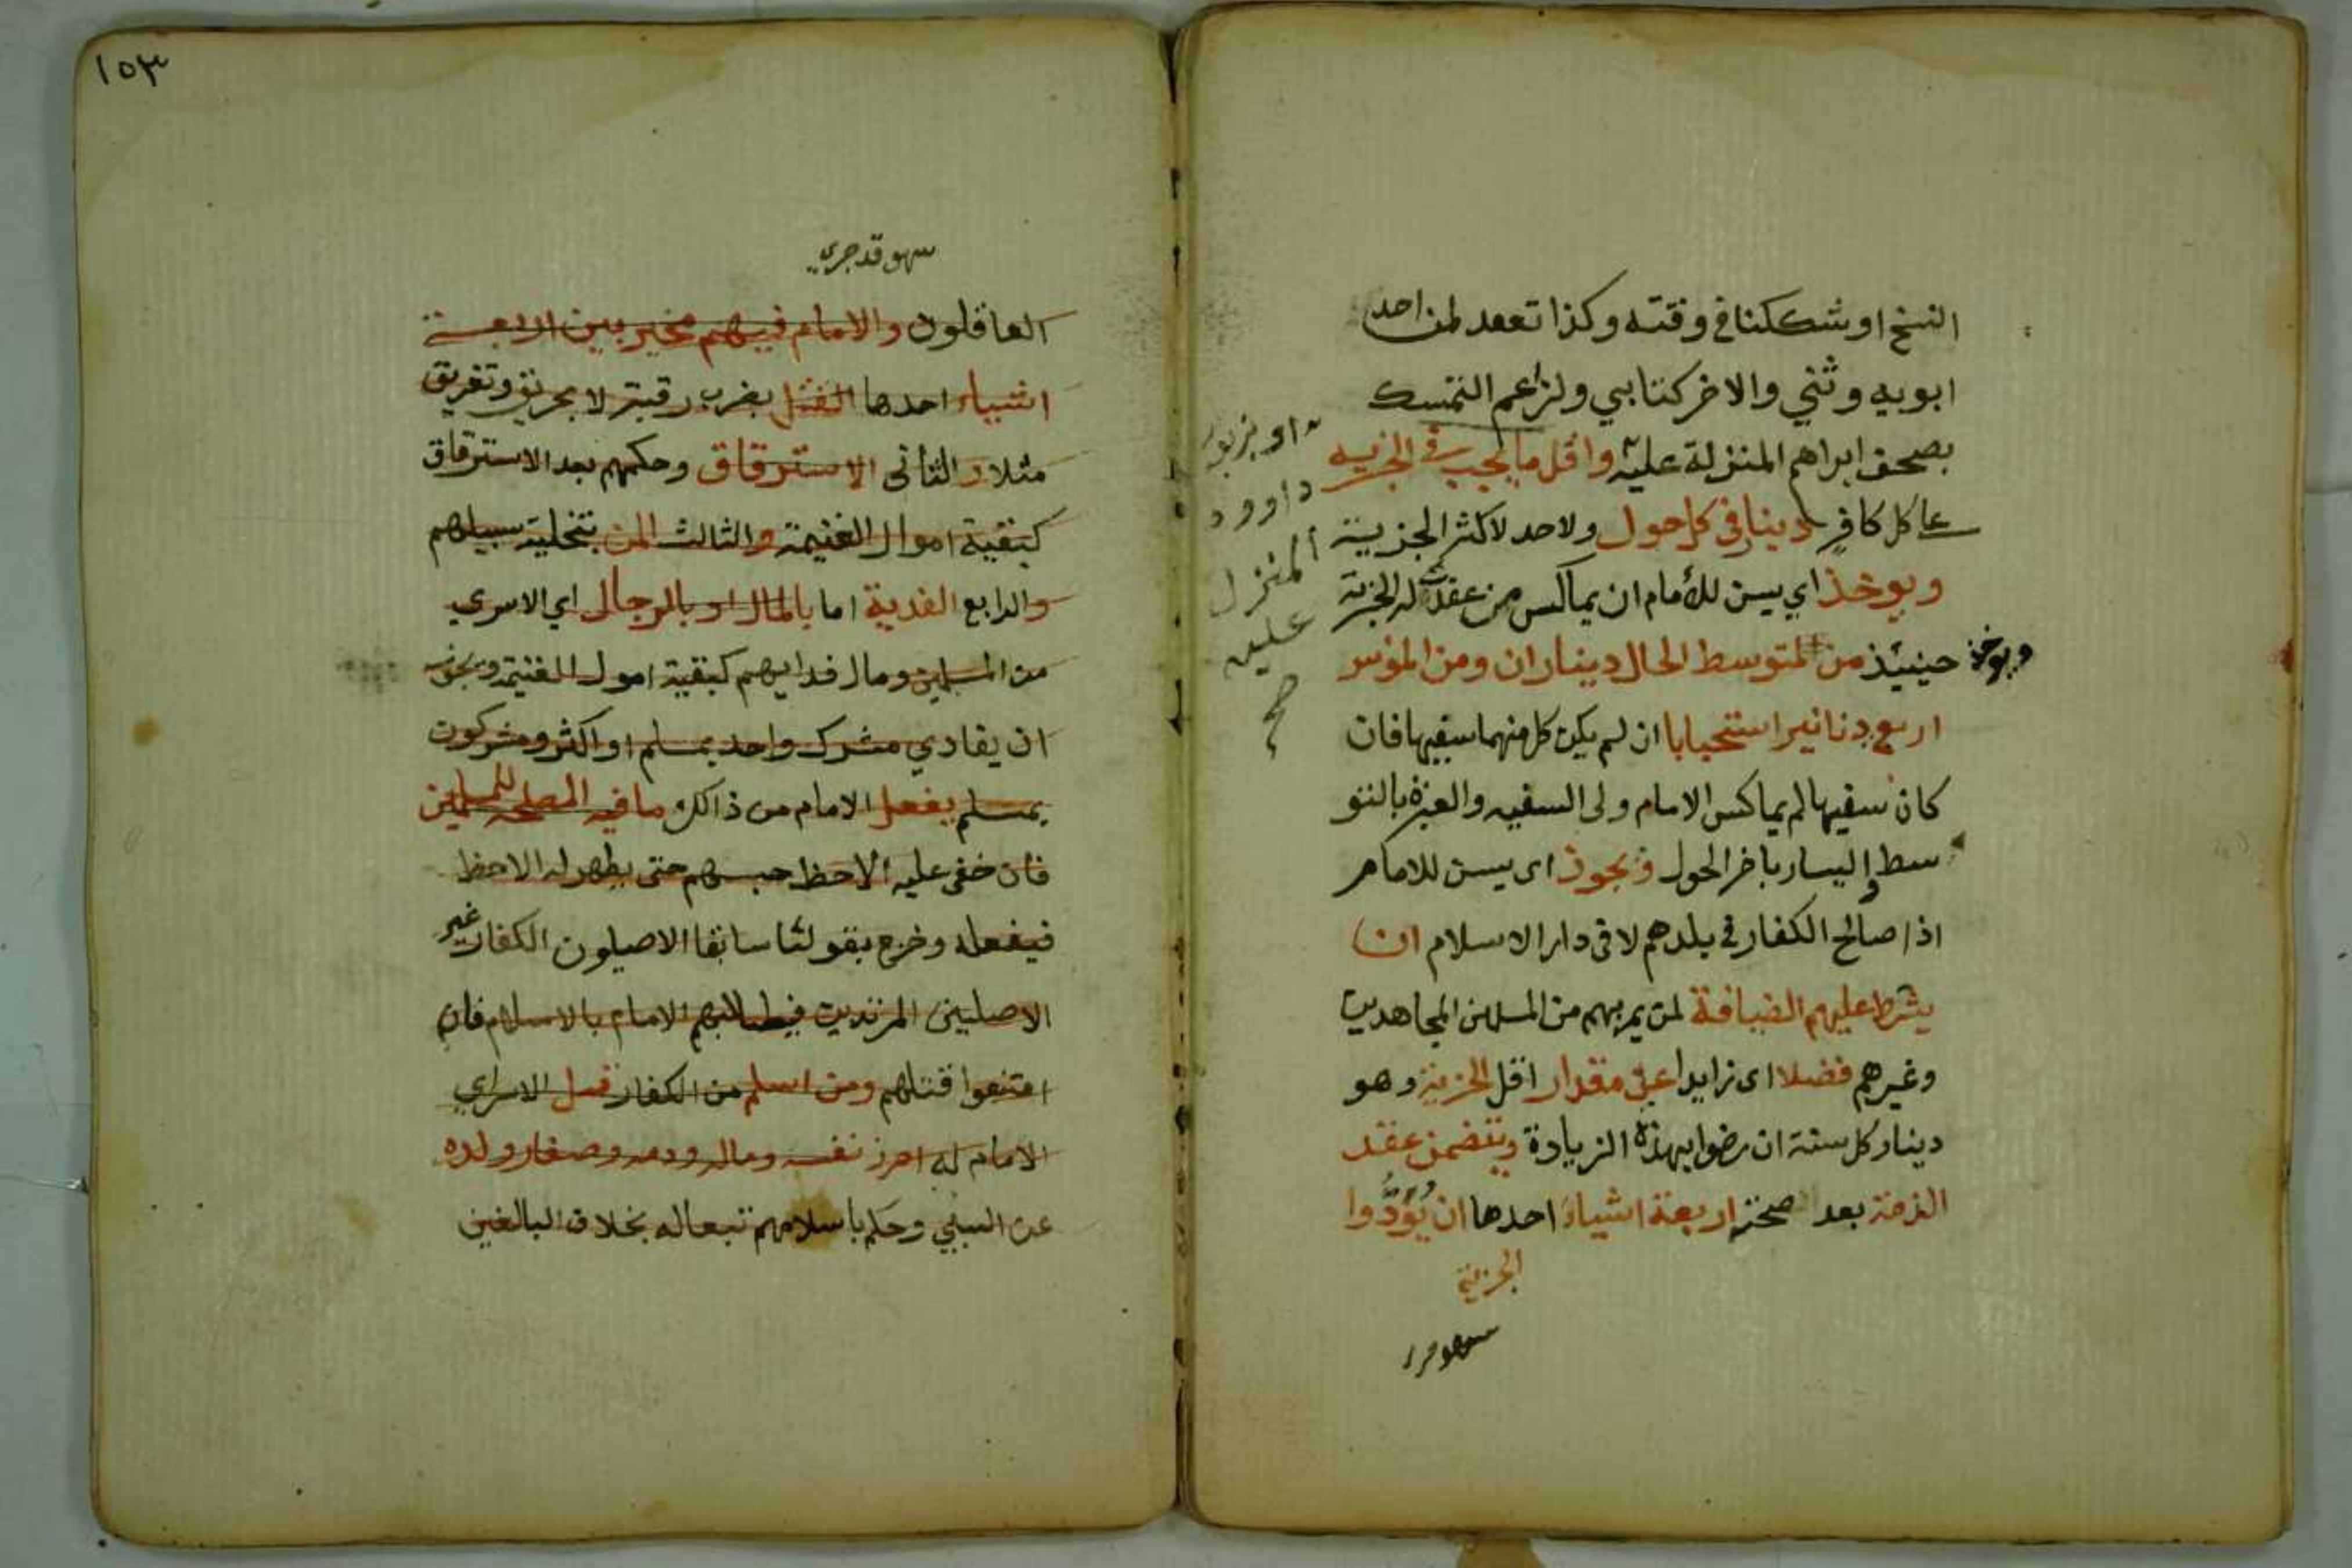 النسخ او شككنا في وقته وكذا تعقد لمن احد
ابويه وثني والاخر كتابي ولزاعم التمسك
بصحف ابراهم المنزلة عليه واقل ما يجب في الجزيه
او بزبور
داوود
المنزل
عليه
صح
على كل كافر دينار في كل حول ولا حد لاكثر الجزية
ويوخذ اي يسن للأمام ان يماكس من عقدت له الجزية
ويوخذ حينيئذ من المتوسط الحال ديناران ومن الموسر
اربع دنانير استحبابا ان لم يكن كل منهما سفيها فان
كان سفيها لم يماكس الامام ولى السفيه والعبزة بالتو
سط واليسار باخر الحول ويجوز اى يسن للامام
اذا صالح الكفار في بلدهم لا فى دار الاسلام ان
يشرط عليهم الضيافة لمن يمر بهم من المسلمين المجاهدين
وغيرهم فضلا اى زايدا على مقدار اقل الجزية وهو
دينار كل سنة ان رضوا بهذه الزيادة ويتضمن عقد
الذمة بعد صحته اربعة اشياء احدها ان يُؤدُّوا
الجزية
١٥٣
سهو قد جري
العاقلون والامام فيهم مخير بين اربعة
اشياء احدها القتل بضرب رقبة لا بحريق وتغريق
مثلا والثانى الاسترقاق وحكمهم بعد الاسترقاق
كبقية اموال الغنيمة والثالث المن بتخلية سبيلهم
والرابع الفدية اما بالمال او بالرجال اي الاسري
من المسلمين ومال فدايهم كبقية امول الغنيمة ويجوز
ان يفادي مشرك واحد بمسلم او اكثر ومشركون
بمسلم يفعل الامام من ذالك ما فيه المصلحه للمسلمين
فان خفى عليه الاحظ حبسهم حتى يظهر له الاحظ
فيفعله وخرج بقولنا سابقا الاصليون الكفار غير
الاصليين المرتدين فيطالبهم الامام بالاسلام فان
امتنعوا قتلهم ومن اسلم من الكفار قبل الاسراي
الامام له احرز نفسه وماله ودمه وصغار ولده
عن السبي وحكم باسلامهم تبعا له بخلاف البالغين